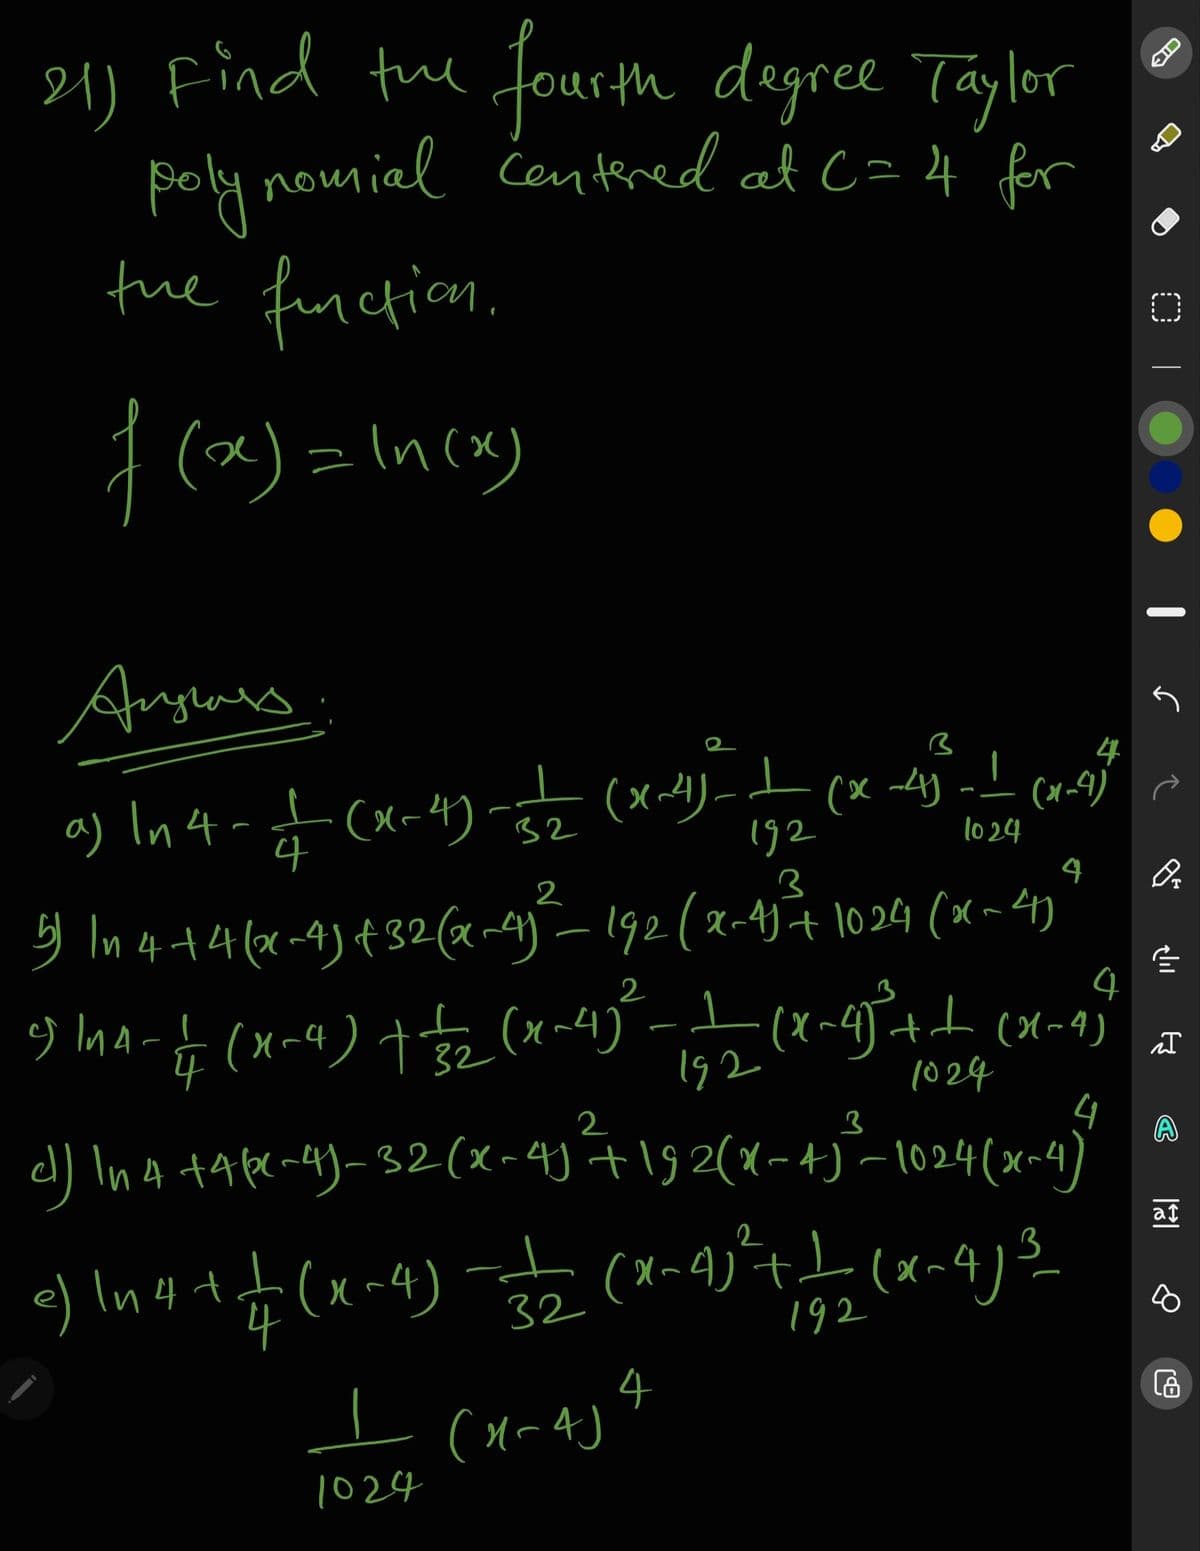 21) Find the fourth degree Taylor
polynomial centered at C = 4 for
the function.
f (x) = ln(x)
Answers :
a) ln 4 - 1/4 (x-4) - 1/32 (x-4)² - 1/192 (x-4)³ - 1/1024 (x-4)⁴
b) ln 4 + 4(x-4) + 32(x-4)² - 192 (x-4)³ + 1024 (x-4)⁴
c) ln 4 - 1/4 (x-4) + 1/32 (x-4)² - 1/192 (x-4)³ + 1/1024 (x-4)⁴
d) ln 4 + 4(x-4) - 32(x-4)² + 192(x-4)³ - 1024(x-4)⁴
e) ln 4 + 1/4 (x-4) - 1/32 (x-4)² + 1/192 (x-4)³ -
1/1024 (x-4)⁴